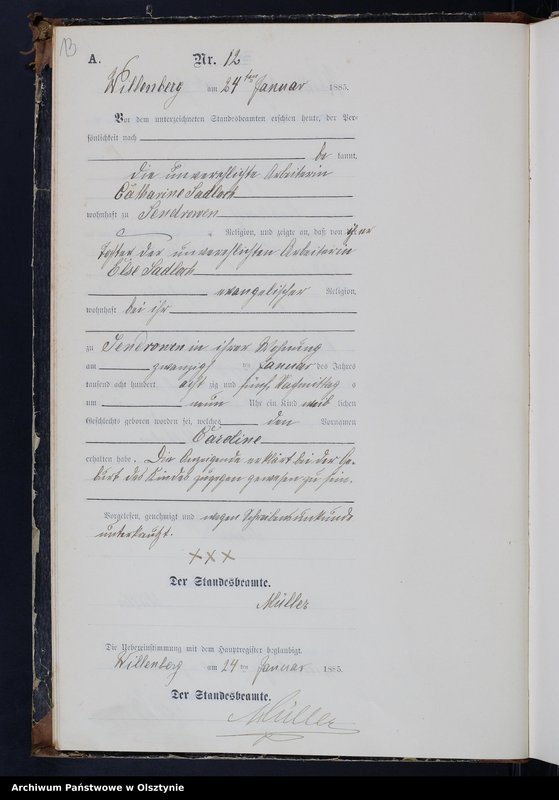 13
A. Nr. 12
Willenberg am 24ten Januar 1885.
Vor dem unterzeichneten Standesbeamten erschien heute, der Per-
sönlichkeit nach
be kannt,
die unverehlichte Arbeiterin
Catharine Sadloch
wohnhaft zu Sendrowen
Religion, und zeigte an, daß von ihrer
Tochter der unverehlichten Arbeiterin
Else Sadloch
evangelischer Religion,
wohnhaft bei ihr
zu Sendrowen in ihrer Wohnung
am zwanzigsten Januar des Jahres
tausend acht hundert acht zig und fünf, Nachmittag s
um neun Uhr ein Kind weib lichen
Geschlechts geboren worden sei, welches den Vornamen
Caroline
erhalten habe. Die Anzeigende erklärt bei der Ge-
burt des Kindes zugegen gewesen zu sein.
Vorgelesen, genehmigt und wegen Schreibensunkunde
unterkreuzt.
+++
Der Standesbeamte.
Müller
Die Uebereinstimmung mit dem Hauptregister beglaubigt.
Willenberg am 24ten Januar 1885.
Der Standesbeamte.
Müller
Archiwum Państwowe w Olsztynie